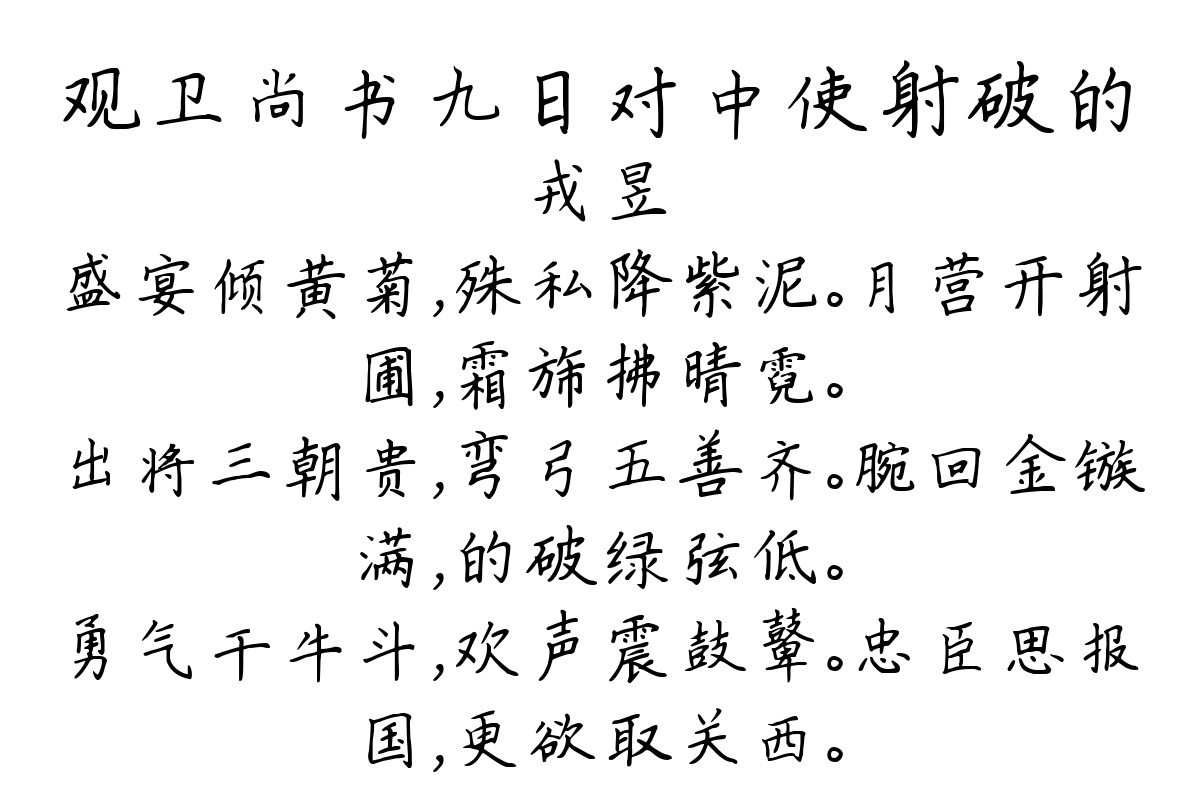 观卫尚书九日对中使射破的
戎昱
盛宴倾黄菊,殊私降紫泥。月营开射
圃,霜旆拂晴霓。
出将三朝贵,弯弓五善齐。腕回金镞
满,的破绿弦低。
勇气干牛斗,欢声震鼓鼙。忠臣思报
国,更欲取关西。